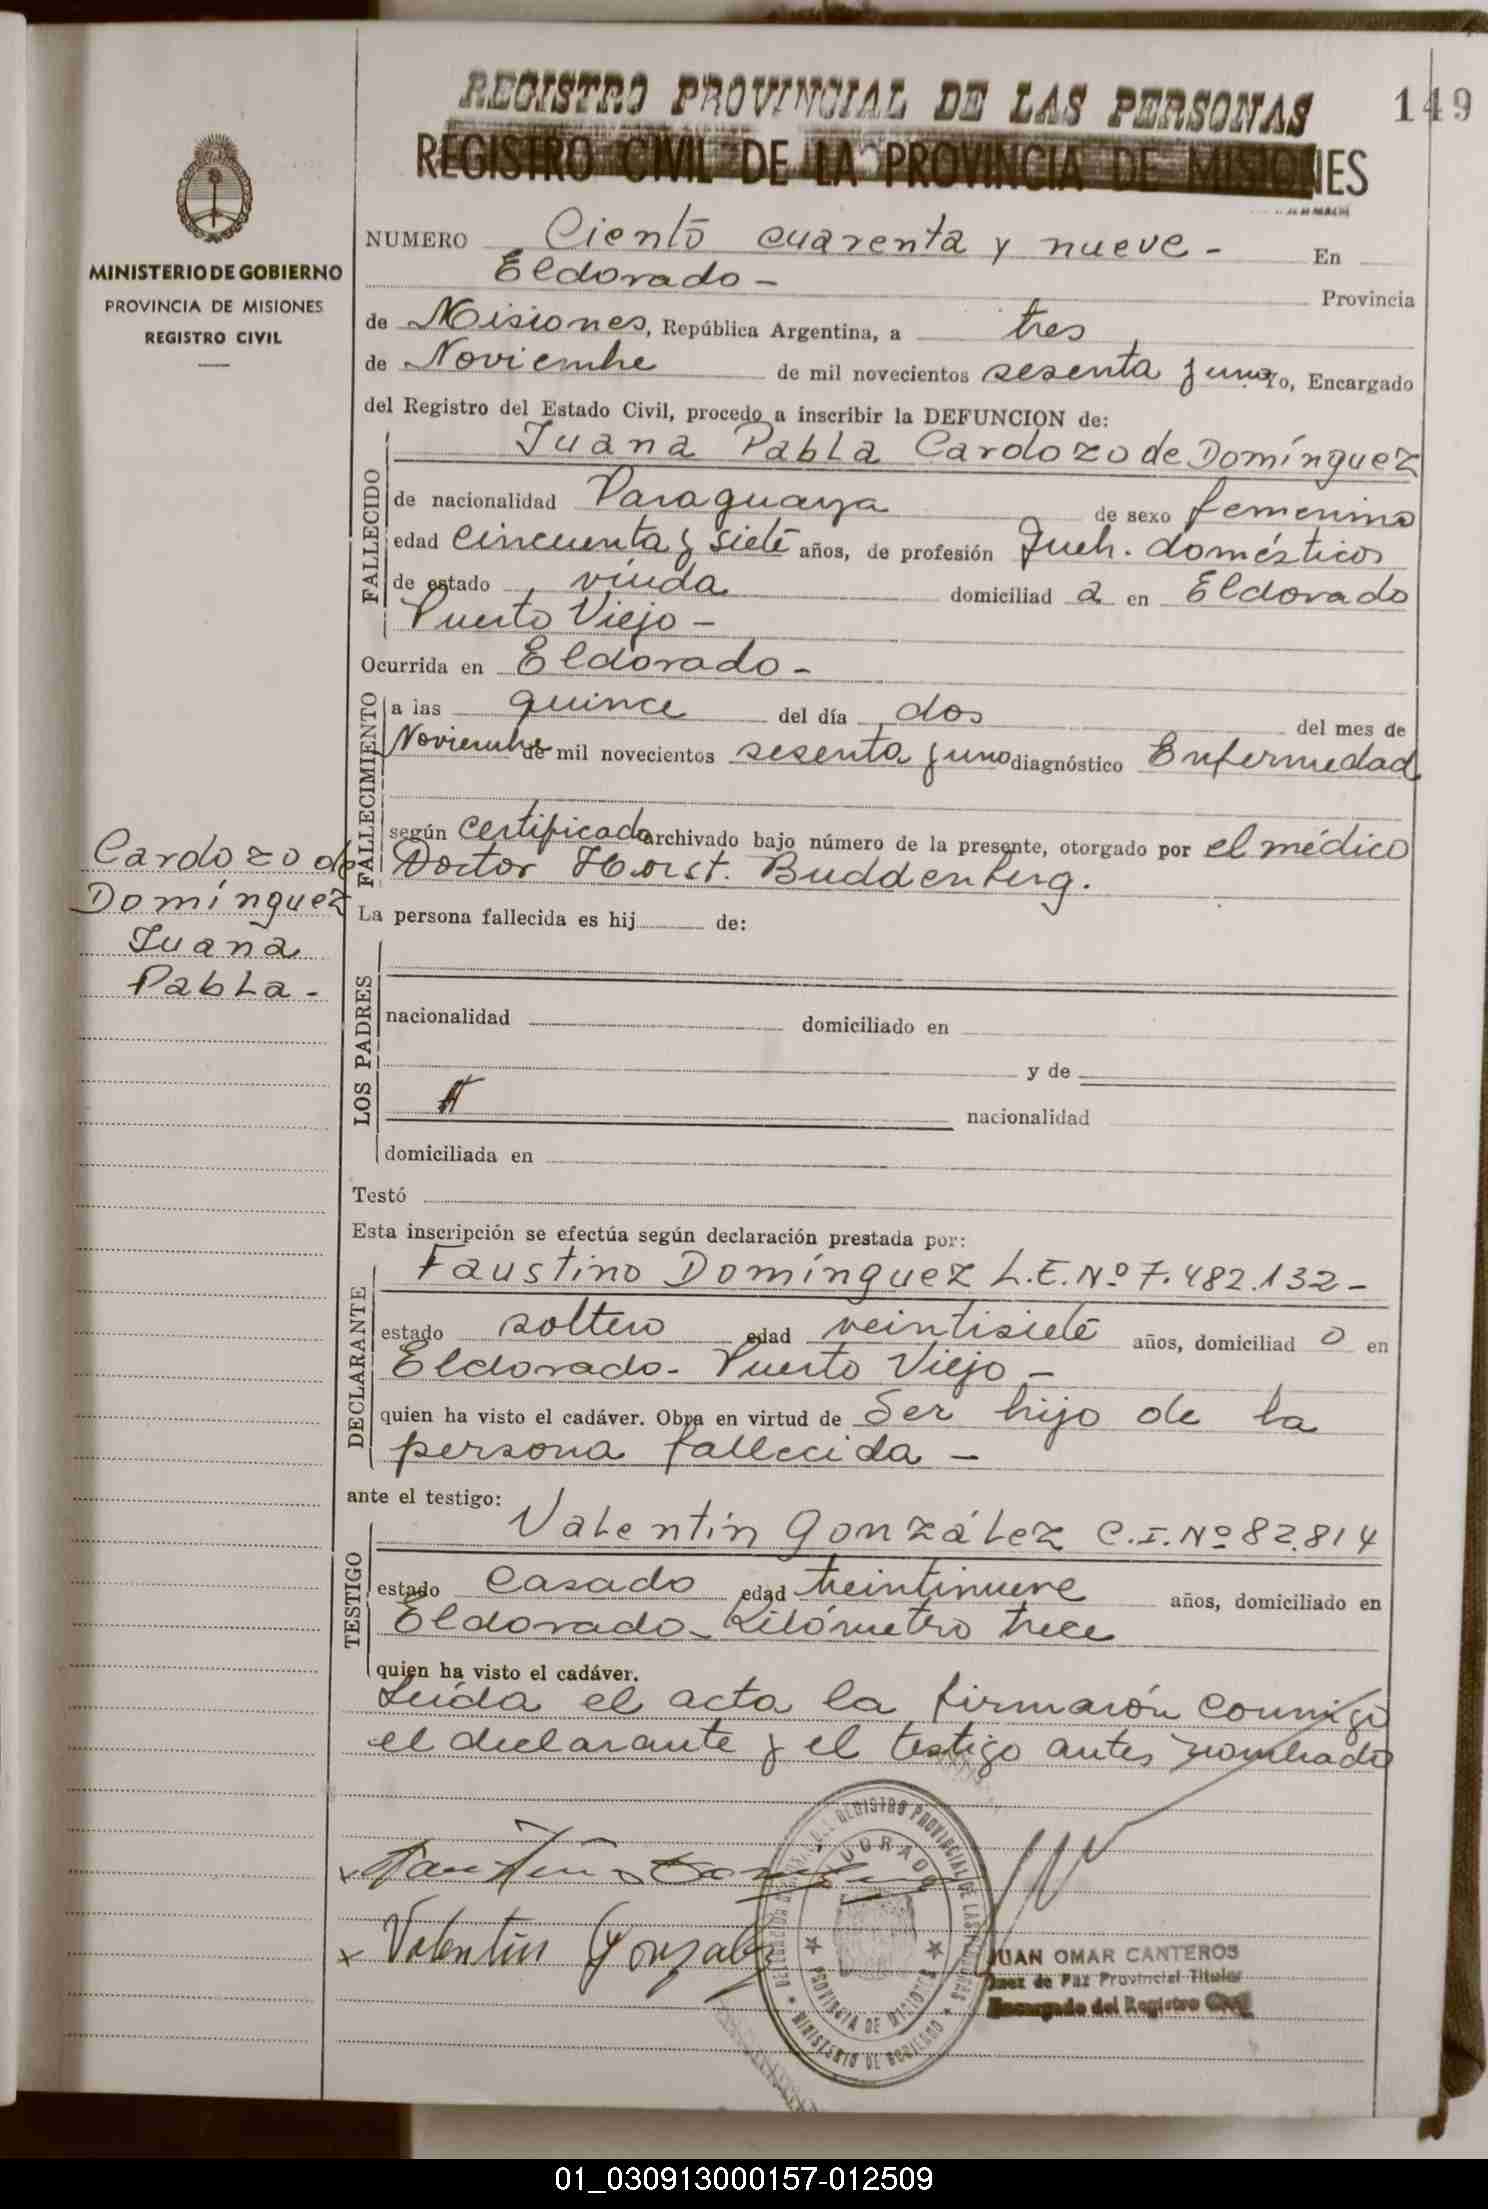 149
REGISTRO PROVINCIAL DE LAS PERSONAS
REGISTRO CIVIL DE LA PROVINCIA DE MISIONES
MINISTERIO DE GOBIERNO
PROVINCIA DE MISIONES
REGISTRO CIVIL
NUMERO Ciento cuarenta y nueve - En
Eldorado - Provincia
de Misiones, República Argentina, a tres
de Noviembre de mil novecientos sesenta y uno yo, Encargado
del Registro del Estado Civil, procedo a inscribir la DEFUNCION de:
FALLECIDO
Juana Pabla Cardozo de Domínguez
de nacionalidad Paraguaya de sexo femenino
edad cincuenta y siete años, de profesión Queh. domésticos
de estado viuda domiciliad a en Eldorado
Puerto Viejo -
Ocurrida en Eldorado -
FALLECIMIENTO
a las quince del día dos del mes de
Noviembre de mil novecientos sesenta y uno diagnóstico Enfermedad
según certificado archivado bajo número de la presente, otorgado por el médico
Doctor Horst. Buddenberg.
Cardozo de
Domínguez
Juana
Pabla -
La persona fallecida es hij de:
LOS PADRES
nacionalidad domiciliado en
y de
nacionalidad
domiciliada en
Testó
Esta inscripción se efectúa según declaración prestada por:
DECLARANTE
Faustino Domínguez L.E. Nº 7.482.132 -
estado soltero edad veintisiete años, domiciliad o en
Eldorado - Puerto Viejo -
quien ha visto el cadáver. Obra en virtud de Ser hijo de la
persona fallecida -
ante el testigo:
TESTIGO
Valentín González C.I. Nº 82.814
estado Casado edad treintinueve años, domiciliado en
Eldorado - Kilómetro trece
quien ha visto el cadáver.
Leída el acta la firmarón conmigo
el declarante y el testigo antes nombrado
x Faustino Domínguez
x Valentín Gonzalez
REGISTRO PROVINCIAL DE LAS PERSONAS
ELDORADO
PROVINCIA DE MISIONES
MINISTERIO DE GOBIERNO
JUAN OMAR CANTEROS
Juez de Paz Provincial Titular
Encargado del Registro Civil
01_030913000157-012509